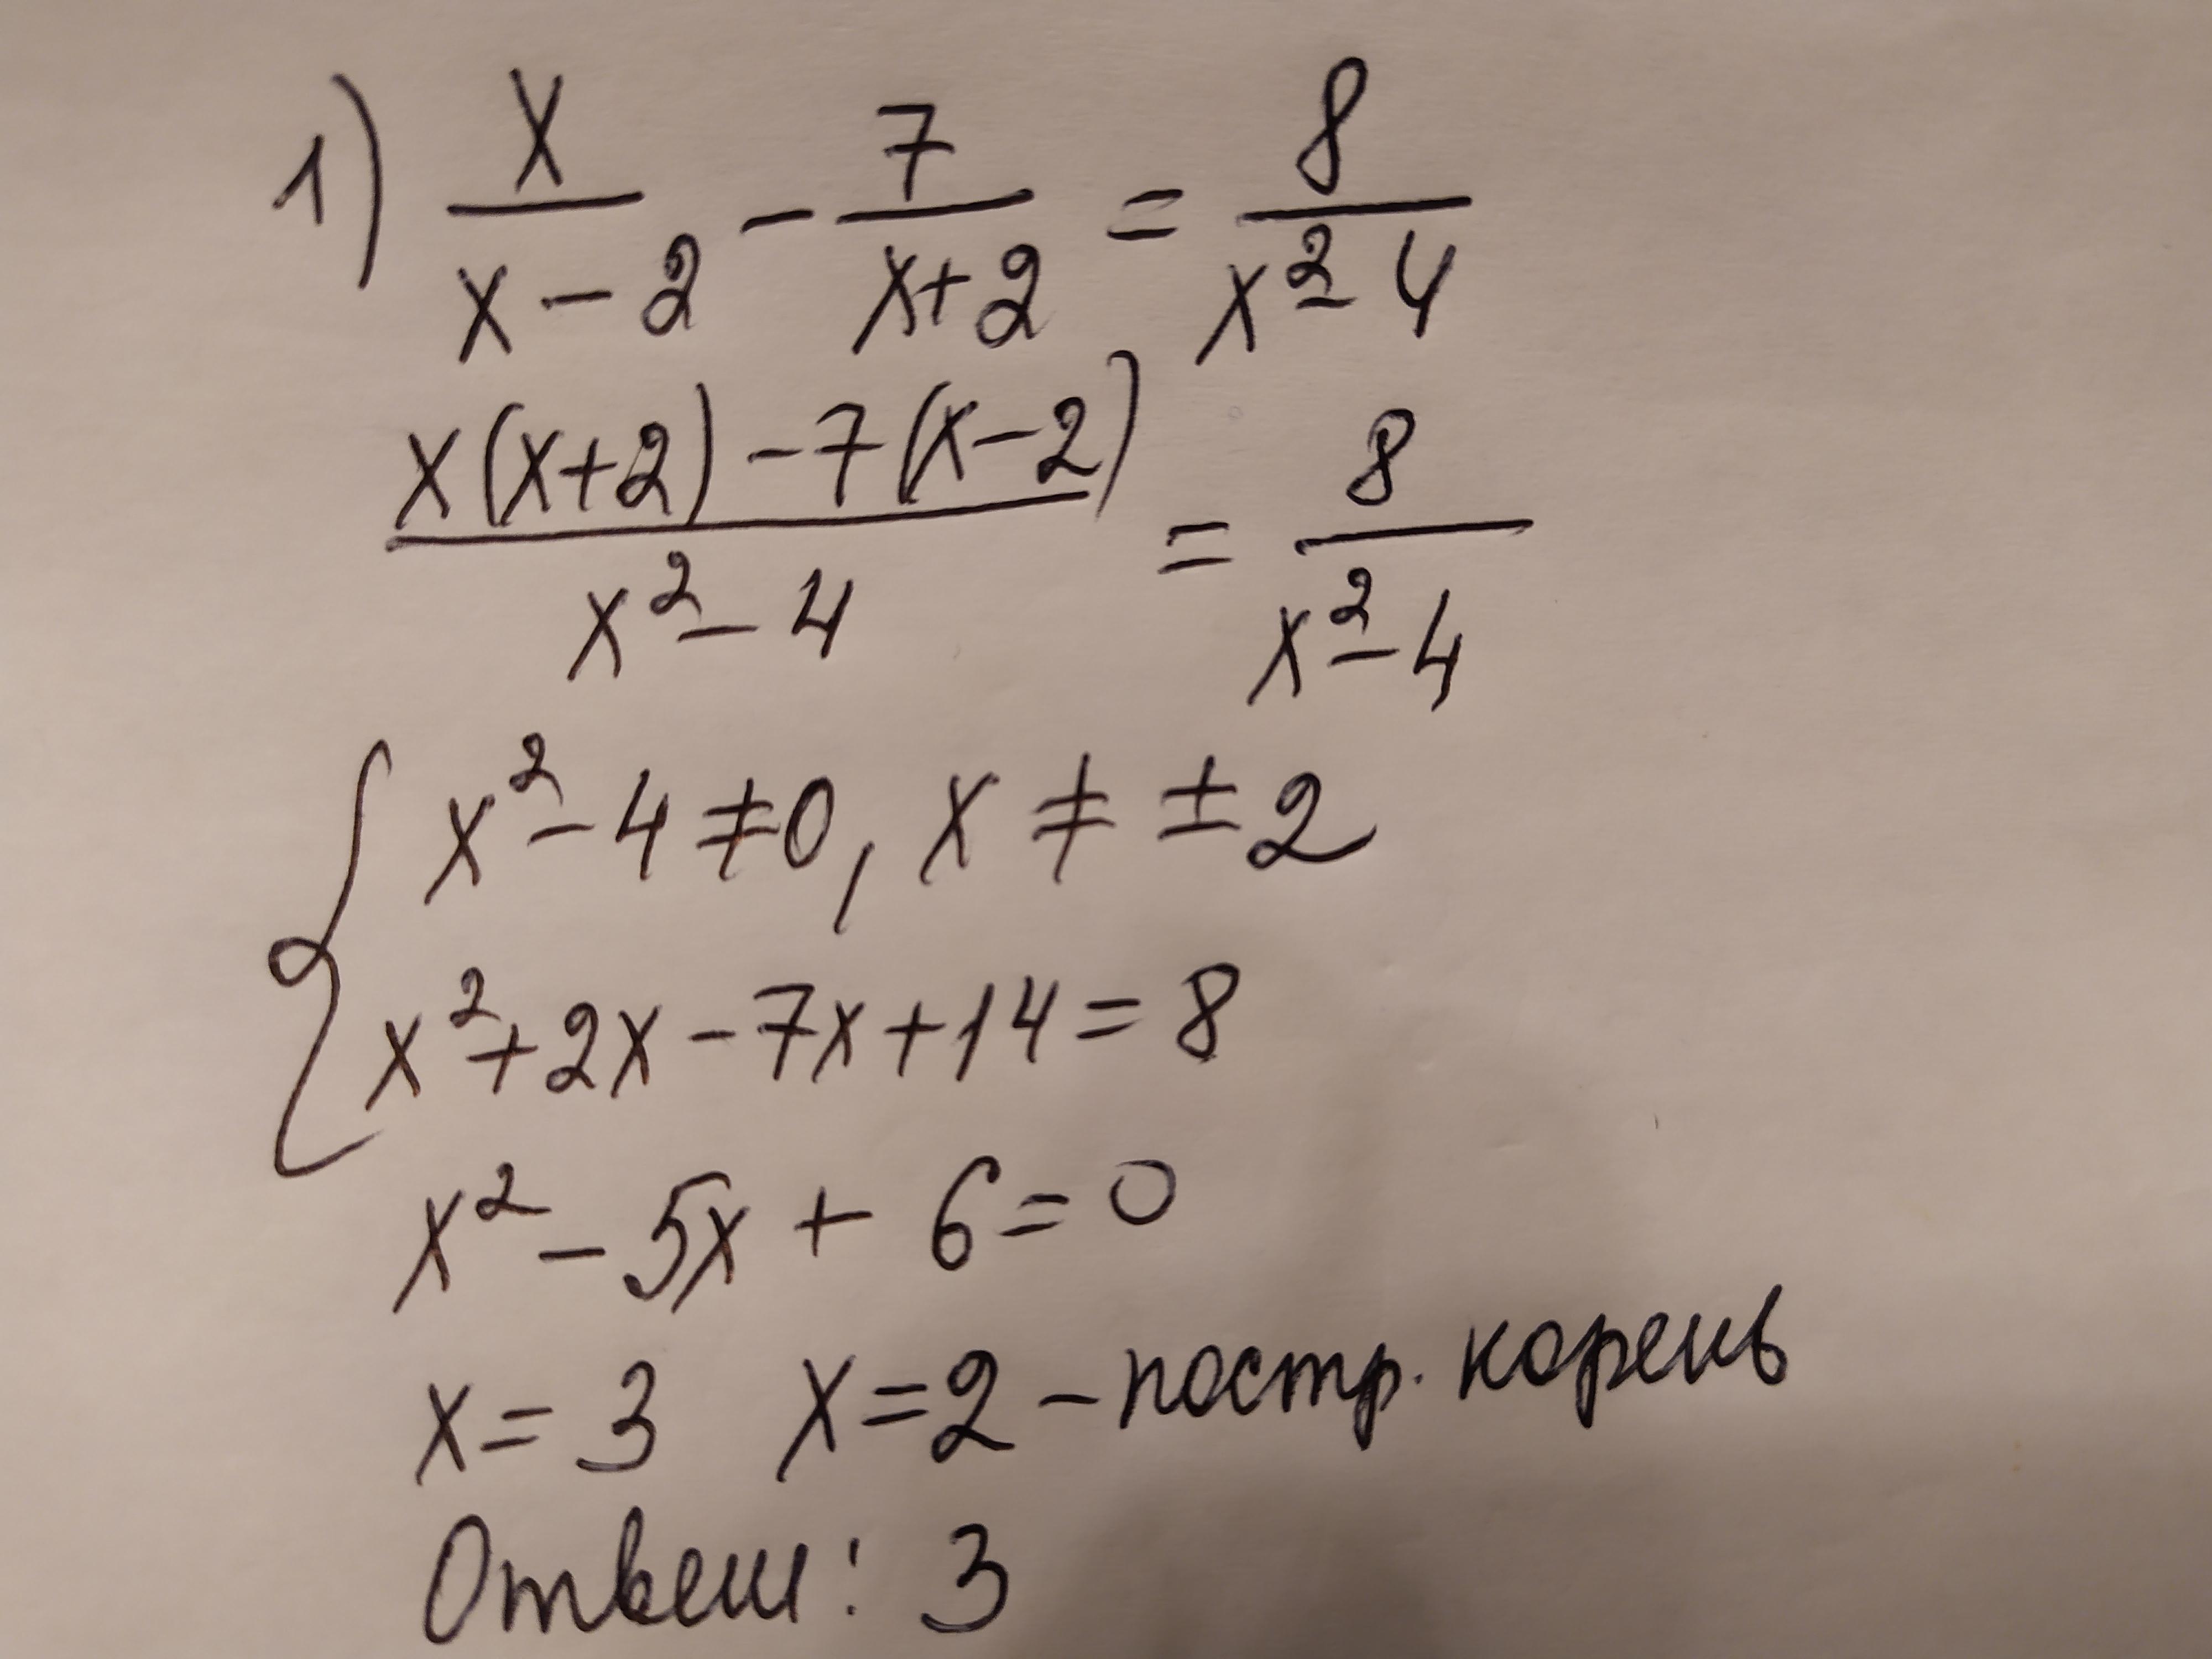 1) x/(x-2) - 7/(x+2) = 8/(x²-4)
(x(x+2)-7(x-2))/(x²-4) = 8/(x²-4)
{ x²-4≠0, x ≠ ±2
x²+2x-7x+14=8
x²-5x+6=0
x=3 x=2 - постр. корень
Ответ: 3